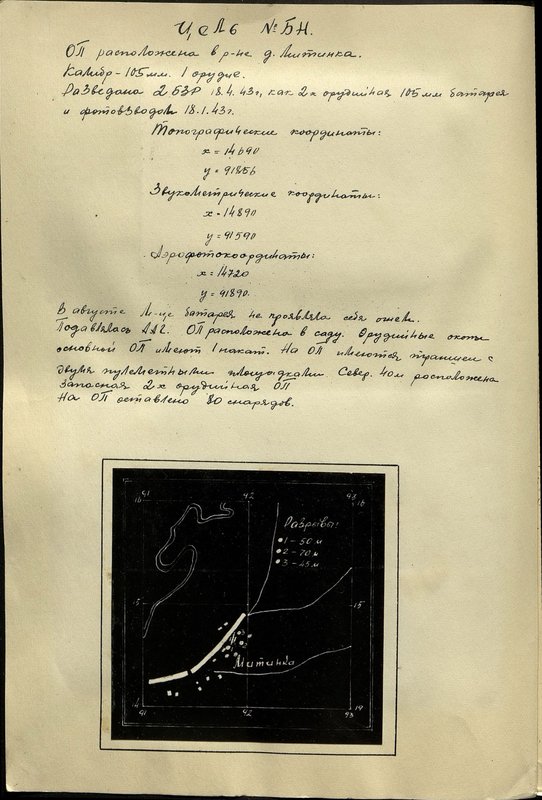 Цель № БН.
ОП расположена в р-не д. Митинка.
Калибр - 105 мм. 1 орудие.
Разведана 2 БЗР 18.4.43г, как 2х орудийная 105 мм батарея
и фотовзводом 18.1.43г.
Топографические координаты:
х = 14690
у = 91856
Звукометрические координаты:
х - 14890
у = 91590
Аэрофотокоординаты:
х = 14720
у = 91890.
В августе м-це батарея не проявляла себя огнем.
Подавлялась ОП расположена в саду. Орудийные окопы
основной ОП имеют 1 накат. На ОП имеются траншеи с
двумя пулеметными площадками. Север. 40м расположена
запасная 2х орудийная ОП
На ОП оставлено 80 снарядов.
91 92 93
16 16
Разрывы:
1 - 50 м
2 - 70 м
3 - 45 м
15 15
Митинка
14 14
91 92 93